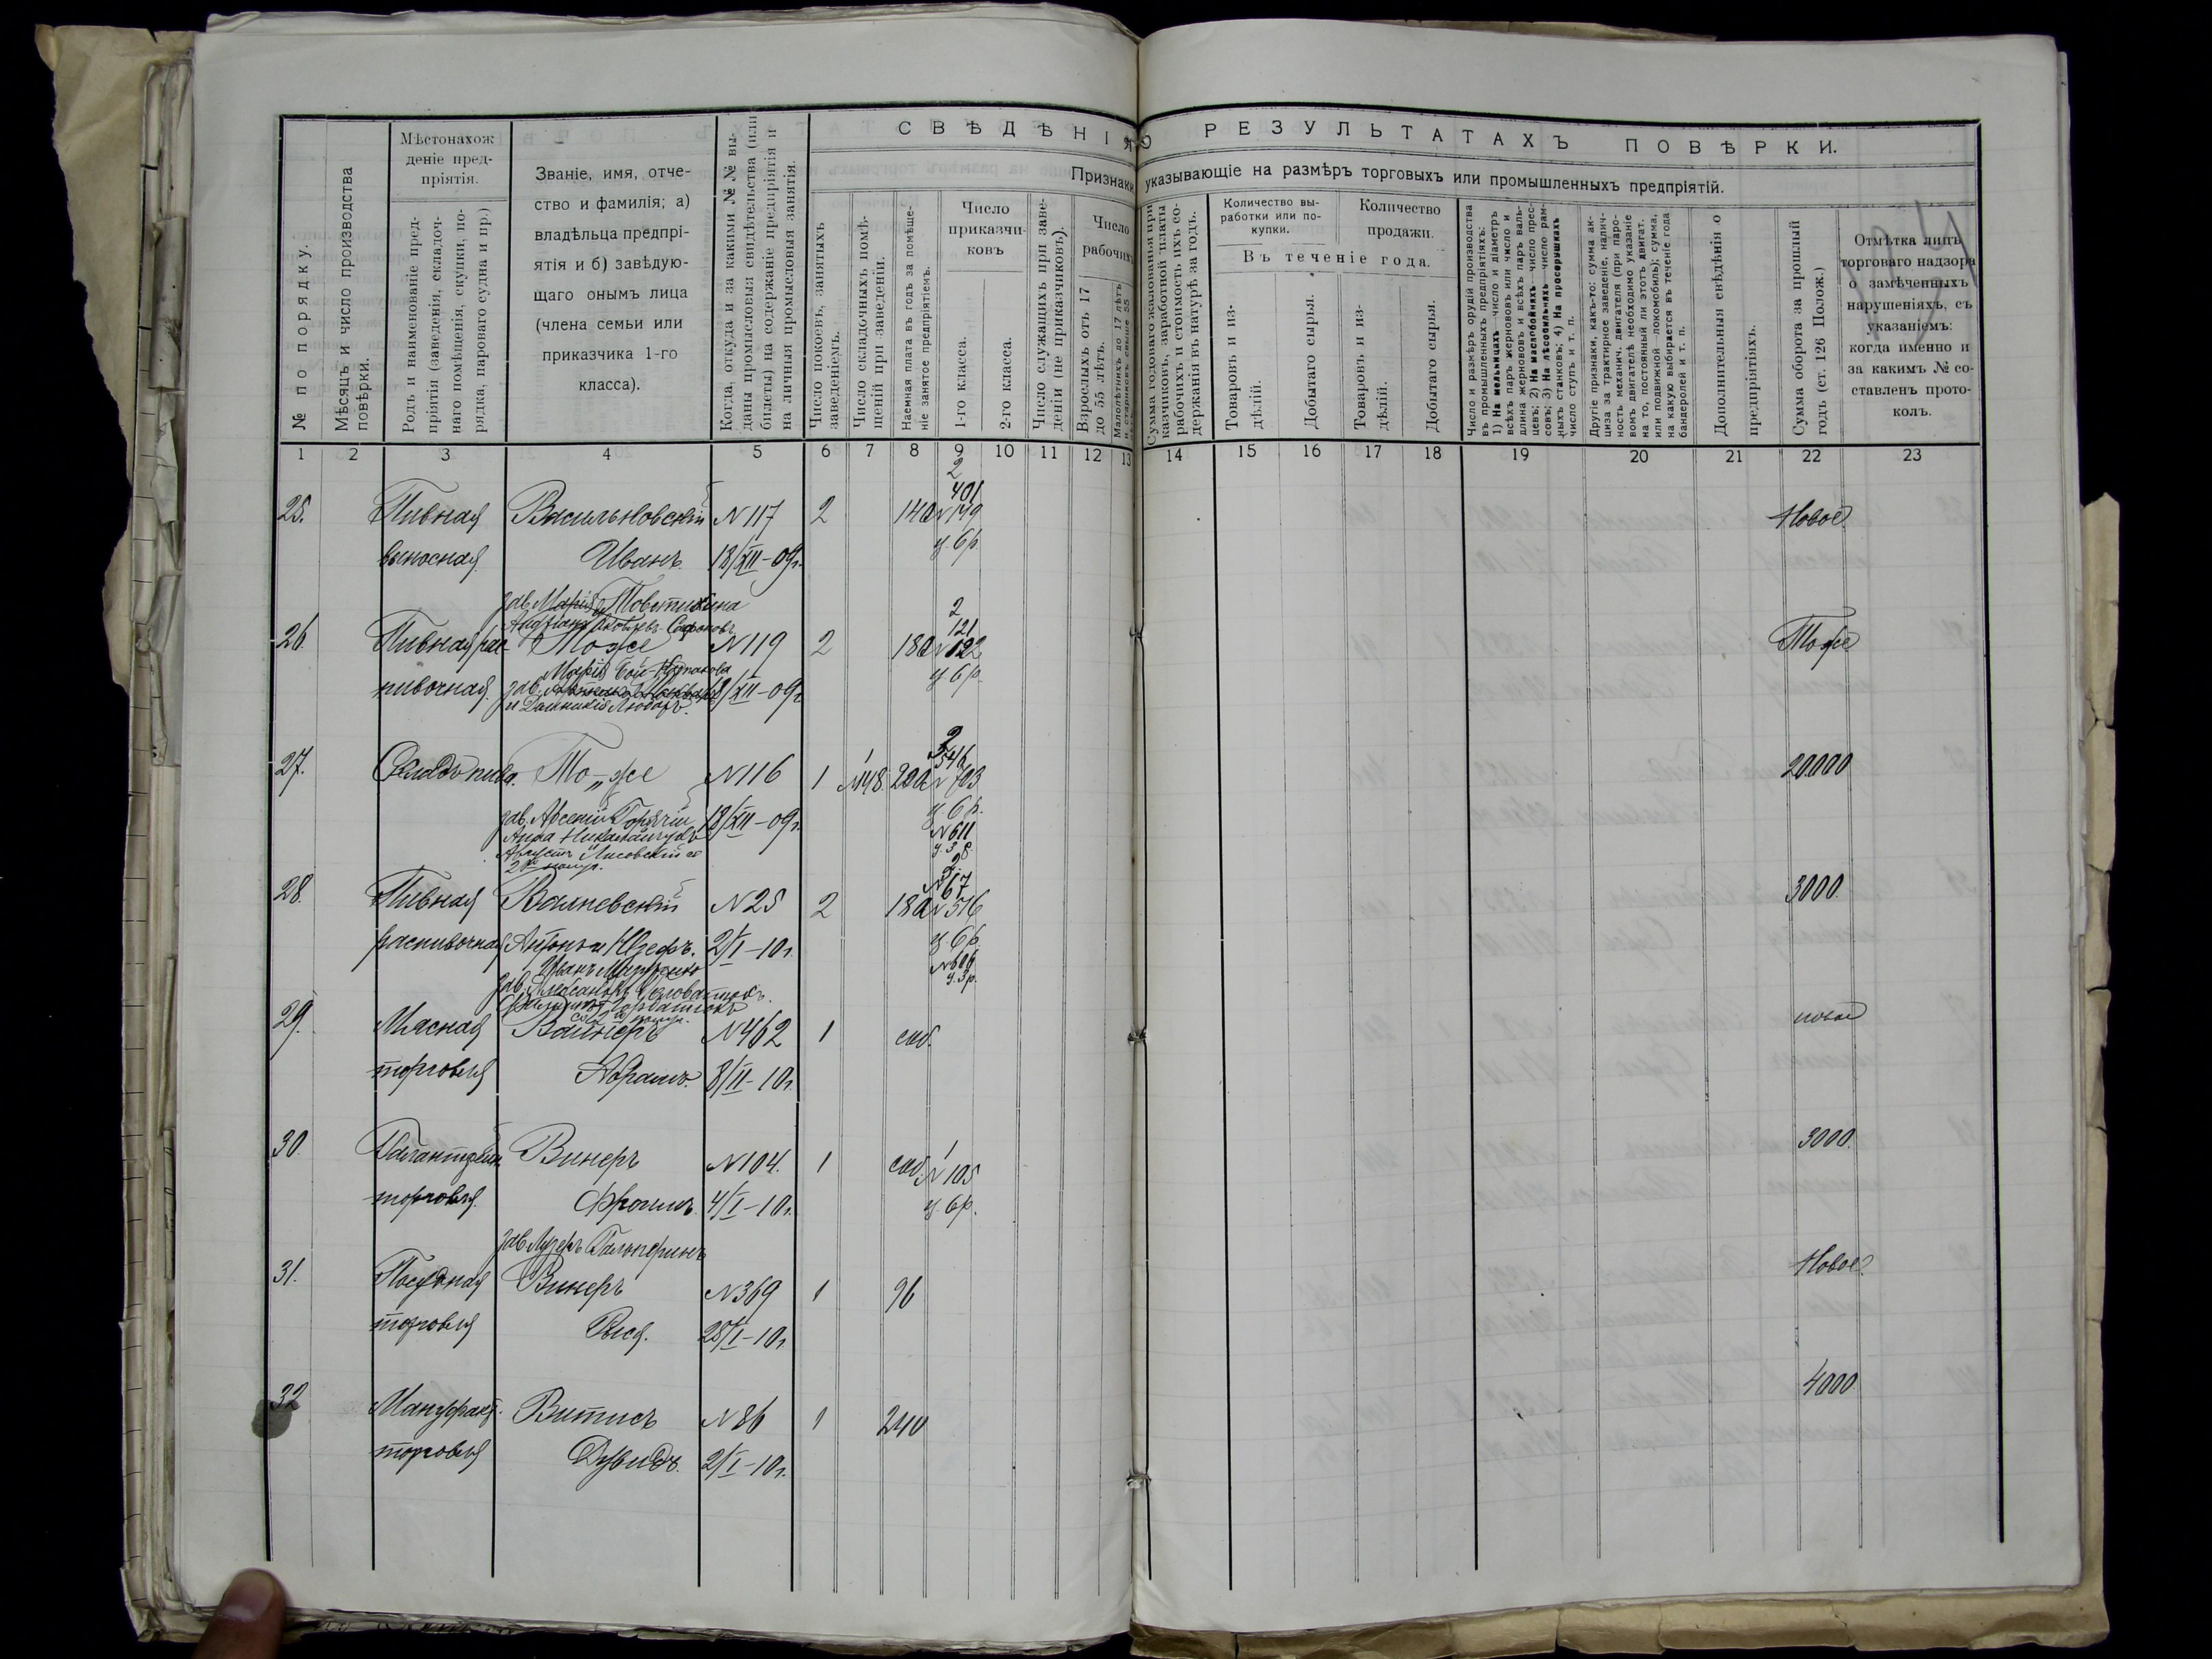 СВѢДѢНІЯ О РЕЗУЛЬТАТАХЪ ПОВѢРКИ.
Признаки, указывающіе на размѣръ торговыхъ или промышленныхъ предпріятій.
№ по порядку.
Мѣсяцъ и число производства
повѣрки.
Мѣстонахож
деніе пред-
пріятія.
Родъ и наименованіе пред-
пріятія (заведенія, складоч-
наго помѣщенія, скупки, по-
рядка, парового судна и пр.)
Званіе, имя, отче-
ство и фамилія; а)
владѣльца предпрі-
ятія и б) завѣдую-
щаго онымъ лица
(члена семьи или
приказчика 1-го
класса).
Когда, откуда и за какими №№ вы-
даны промысловыя свидѣтельства (или
билеты) на содержаніе предпріятія и
на личныя промысловыя занятія.
Число покоевъ, занятыхъ
заведеніемъ.
Число складочныхъ помѣ-
щеній при заведеніи.
Наемная плата въ годъ за помѣще-
ніе занятое предпріятіемъ.
Число
приказчи-
ковъ
1-го класса.
2-го класса.
Число служащихъ при заве-
деніи (не приказчиковъ).
Число
рабочихъ
Взрослыхъ отъ 17
до 55 лѣтъ.
Малолѣтнихъ до 17 лѣтъ
и стариковъ свыше 55
Сумма годового жалованья при
казчиковъ, заработной платы
рабочихъ и стоимость ихъ со-
держанія въ натурѣ за годъ.
Количество вы-
работки или по-
купки.
Количество
продажи.
Въ теченіе года.
Товаровъ и из-
дѣлій.
Добытаго сырья.
Товаровъ и из-
дѣлій.
Добытаго сырья.
Число и размѣръ орудій производства
въ промышленныхъ предпріятіяхъ:
1) На мельницахъ число и діаметръ
всѣхъ паръ жернововъ или число и
длина жернововъ и всѣхъ паръ валь-
цевъ; 2) На маслобойняхъ число прес-
совъ; 3) На лѣсопильняхъ число рам-
ныхъ станковъ; 4) На просорушкахъ
число ступъ и т. п.
Другіе признаки, какъ-то: сумма ак-
циза за трактирное заведеніе, налич-
ность механич. двигателя (при паро-
вомъ двигателѣ необходимо указаніе
на то, постоянный ли этотъ двигат.
или подвижной—локомобиль); сумма,
на какую выбирается въ теченіе года
бандеролей и т. п.
Дополнительныя свѣдѣнія о
предпріятіяхъ.
Сумма оборота за прошлый
годъ (ст. 126 Полож.)
Отмѣтка лицъ
торговаго надзора
о замѣченныхъ
нарушеніяхъ, съ
указаніемъ:
когда именно и
за какимъ № со-
ставленъ прото-
колъ.
1 2 3 4 5 6 7 8 9 10 11 12 13 14 15 16 17 18 19 20 21 22 23
2
401
25. Пивная Васильковскій N 117 2 140 N 199 Новое
выносная Иванъ. 18/XII-09г. ц. 6р.
зав. Марія Товстихина
2
121
26. Пивная рас- Тоже N 119 2 180 N 122 Тоже
пивочная. 18/XII-09г. ц. 6р.
2
546
27. Складъ пива. То-же N 116 1 N 148 200 N 703 20.000
зав. Арсеній 18/XII-09г. ц. 6р.
N 611
ц. 3
2
67
28. Пивная Валневскій N 25 2 180 N 576 3000.
распивочная Антонъ и Юзефъ. 2/I-10г. ц. 6р.
N 606
ц. 3р.
29. Мясная Вайнеръ N 462 1 соб. новое
торговля Абрамъ. 8/II-10г.
30. Галантерейн. Винеръ N 104. 1 соб. N 105 3000.
торговля. Фроимъ. 4/I-10г. ц. 6р.
зав. Лузеръ Гальперинъ
31. Посудная Винеръ N 369 1 96 Новое.
торговля Рыся. 28/I-10г.
32 Мануфакт. Витисъ N 86 1 240 4000
торговля Дувидъ. 2/I-10г.